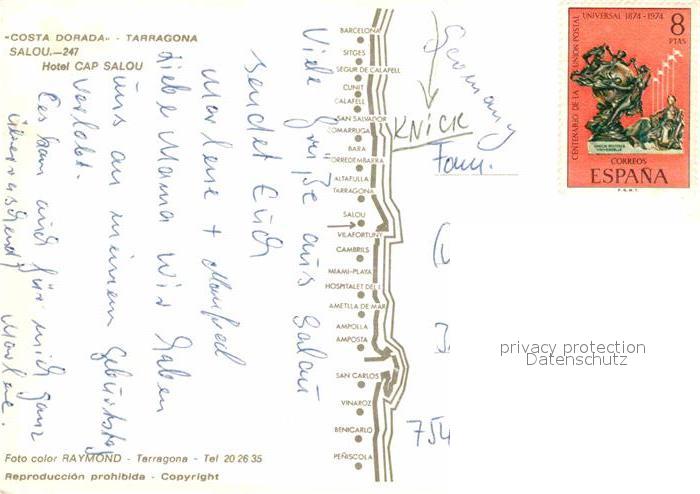 «COSTA DORADA» - TARRAGONA
SALOU.—247
Hotel CAP SALOU
Viele Grüße aus Salou
sendet Euch
Marlene + Manfred
Liebe Mama wir haben
uns an meinem Geburtstag
verlobt.
Es kam auch für mich ganz
überraschend! Marlene.
Foto color RAYMOND - Tarragona - Tel 20 26 35
Reproducción prohibida - Copyright
BARCELONA
SITGES
SEGUR DE CALAFELL
CUNIT
CALAFELL
SAN SALVADOR
COMARRUGA
BARA
TORREDEMBARRA
ALTAFULLA
TARRAGONA
SALOU
VILAFORTUNY
CAMBRILS
MIAMI-PLAYA
HOSPITALET DEL I.
AMETLLA DE MAR
AMPOLLA
AMPOSTA
SAN CARLOS
VINAROZ
BENICARLO
PEÑISCOLA
Germany
KNICK
Fam.
754
CENTENARIO DE LA UNION POSTAL UNIVERSAL 1874-1974
8
PTAS
CORREOS
ESPAÑA
F.N.M.T.
privacy protection
Datenschutz